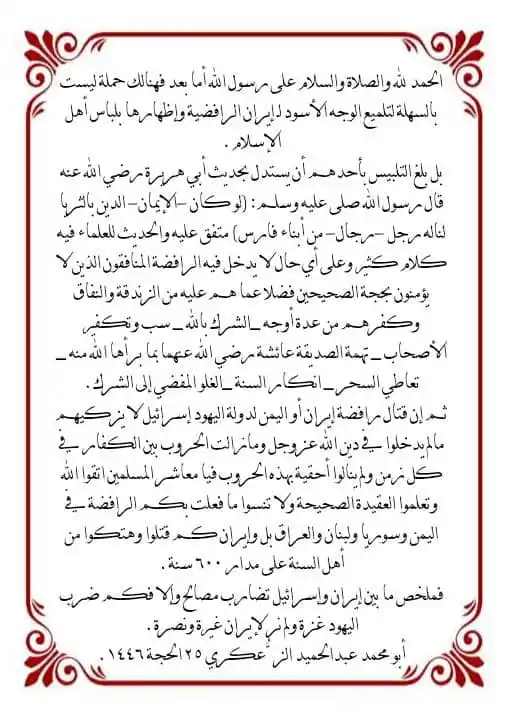 الحمد لله والصلاة والسلام على رسول الله أما بعد فهنالك حملة ليست
بالسهلة لتلميع الوجه الأسود لإيران الرافضية وإظهارها بلباس أهل
الإسلام .
بل بلغ التلبيس بأحدهم أن يستدل بحديث أبي هريرة رضي الله عنه
قال رسول الله صلى عليه وسلم: (لو كان –الإيمان– الدين بالثريا
لناله رجل –رجال– من أبناء فارس) متفق عليه والحديث للعلماء فيه
كلام كثير وعلى أي حال لا يدخل فيه الرافضة المنافقون الذين لا
يؤمنون بحجة الصحيحين فضلا عما هم عليه من الزندقة والنفاق
وكفرهم من عدة أوجه _ الشرك بالله _ سب وتكفير
الأصحاب _ تهمة الصديقة عائشة رضي الله عنهما بما برأها الله منه _
تعاطي السحر _ انكار السنة _ الغلو المفضي إلى الشرك .
ثم إن قتال رافضة إيران أو اليمن لدولة اليهود إسرائيل لا يزكيهم
مالم يدخلوا في دين الله عز وجل وما زالت الحروب بين الكفار في
كل زمن ولم ينالوا أحقية بهذه الحروب فيا معاشر المسلمين اتقوا الله
وتعلموا العقيدة الصحيحة ولا تنسوا ما فعلت بكم الرافضة في
اليمن وسوريا ولبنان والعراق بل وإيران كم قتلوا وهتكوا من
أهل السنة على مدار ٦٠٠ سنة .
فملخص ما بين إيران وإسرائيل تضارب مصالح وإلا فكم ضرب
اليهود غزة ولم نر لإيران غيرة ونصرة .
أبو محمد عبدالحميد الزُّعكري ٢٥ الحجة ١٤٤٦ .